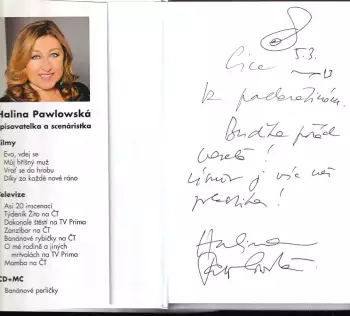 Halina Pawlowská
spisovatelka a scenáristka
Filmy
Evo, vdej se
Můj hříšný muž
Vrať se do hrobu
Díky za každé nové ráno
Televize
Asi 20 inscenací
Týdeník Žito na ČT
Dokonalé štěstí na TV Prima
Zanzibar na ČT
Banánové rybičky na ČT
O mé rodině a jiných
mrtvolách na TV Prima
Mamba na ČT
CD+MC
Banánové perličky
5.3.
k narozeninám.
Buďte pořád
veselá!
Úsměv je víc než
plastika!
Halina
Pawlowská